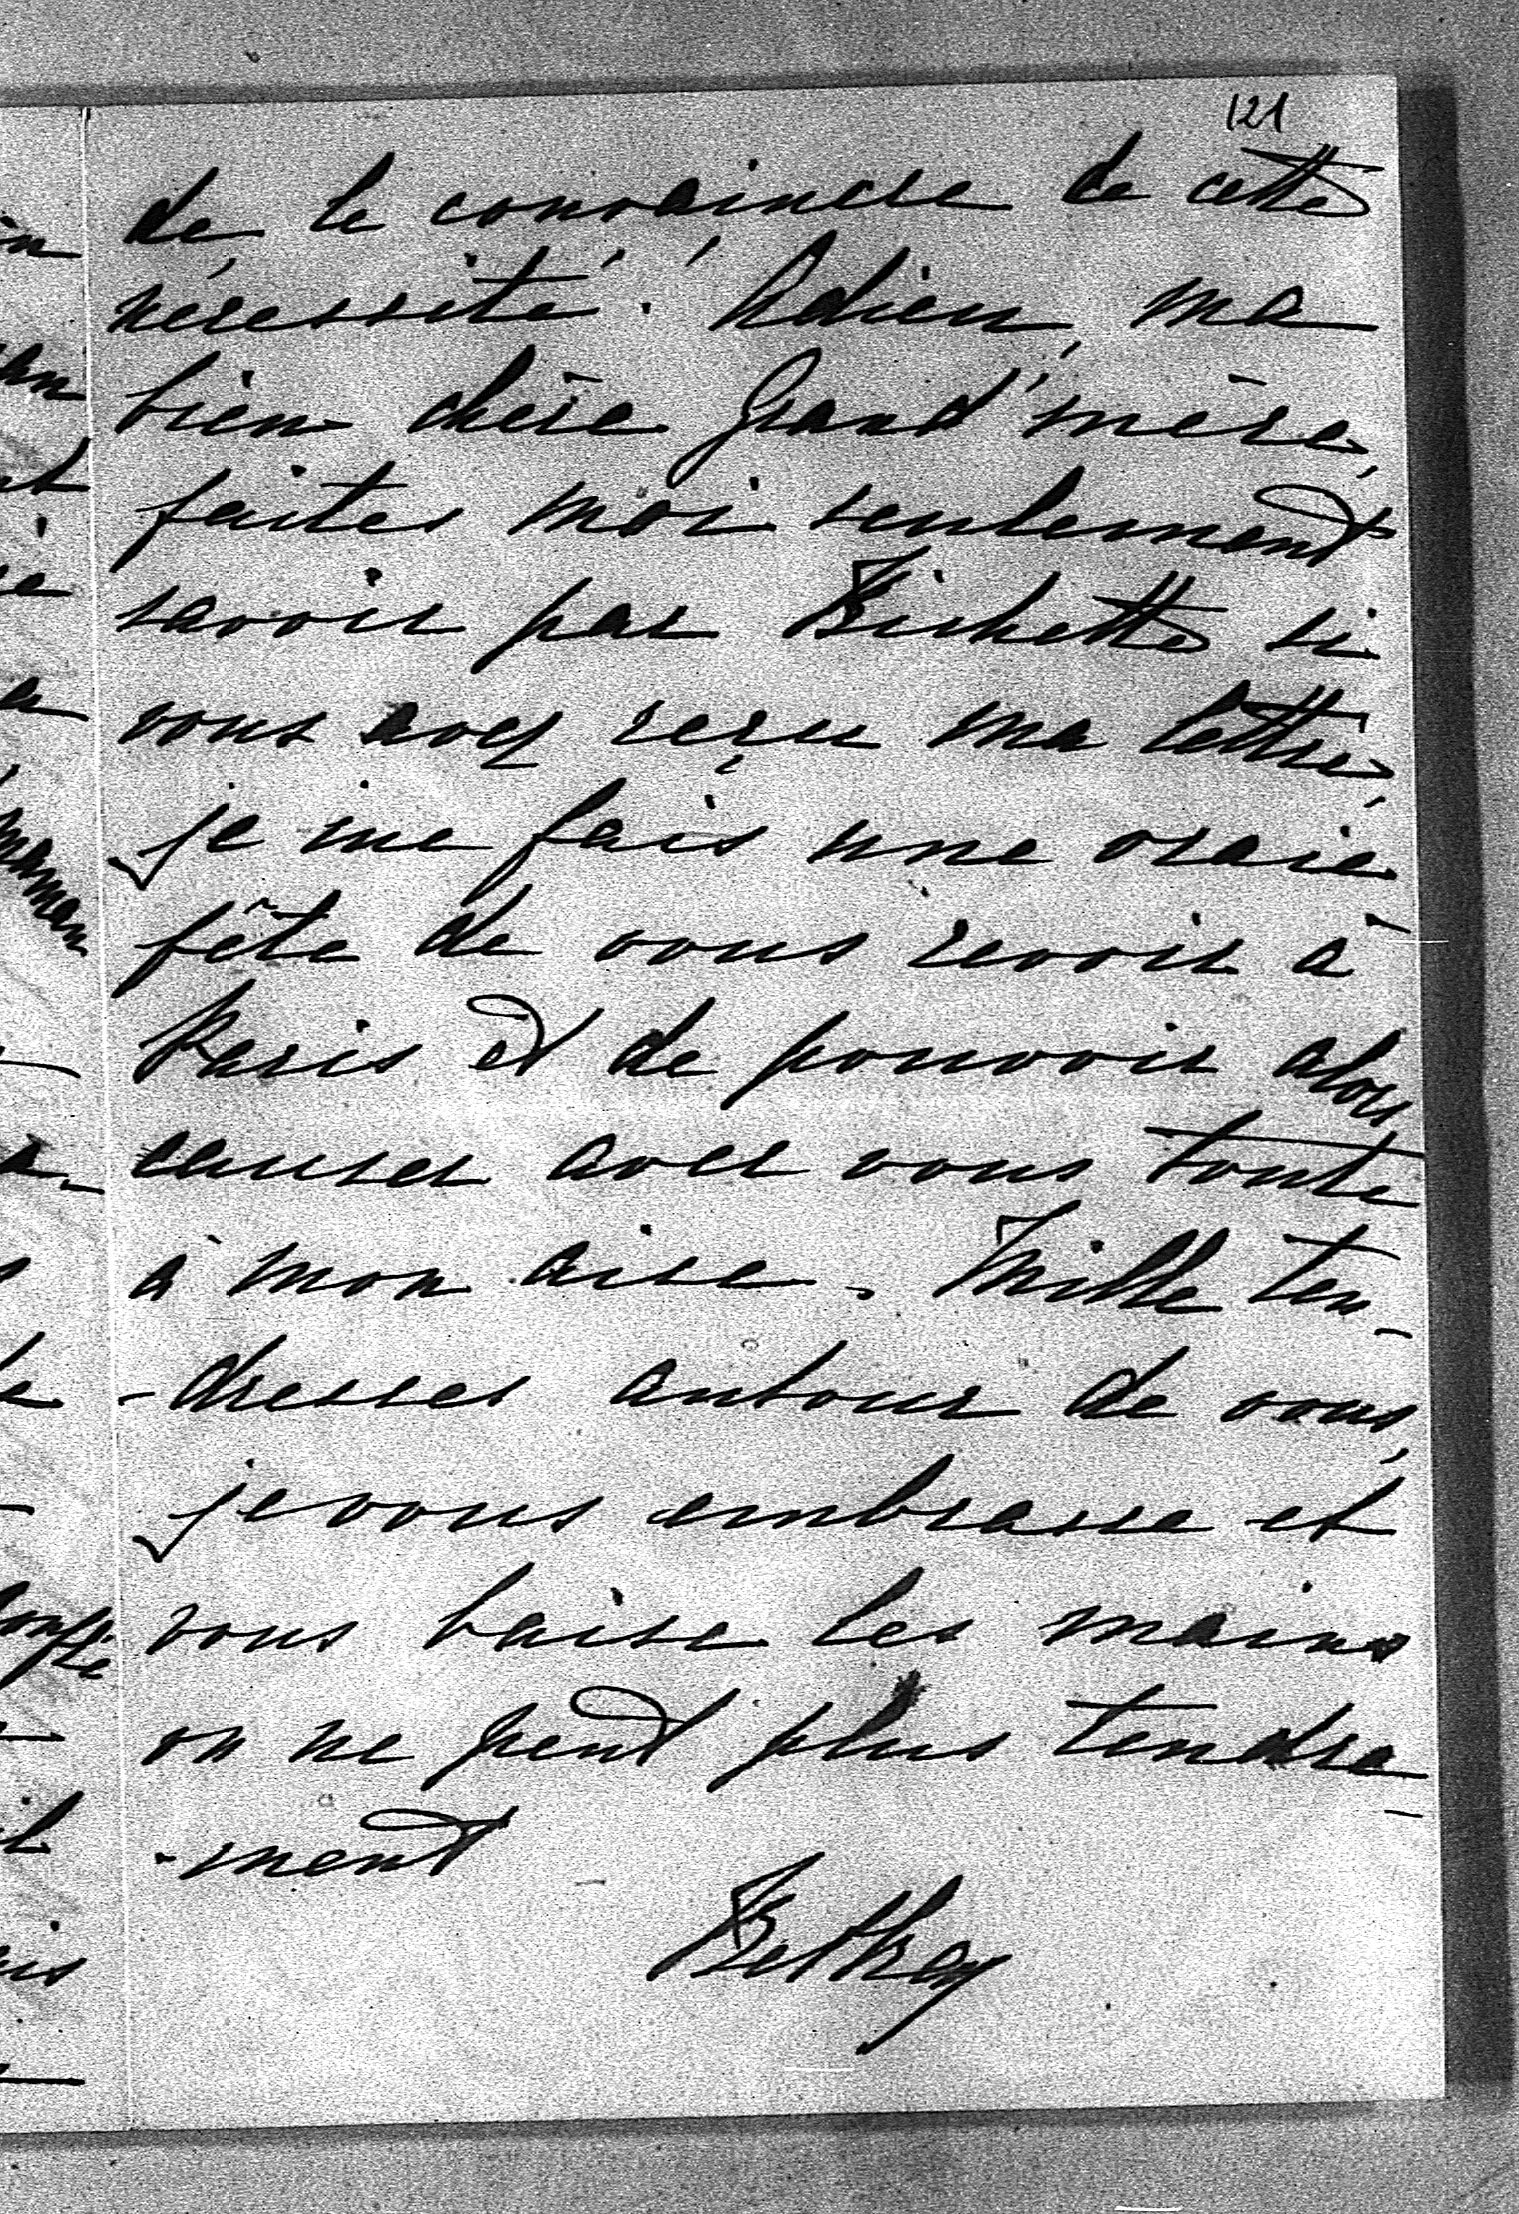 121
de le convaincre de cette
nécessité. Adieu, ma
bien chère Grand'mère,
faites moi seulement
savoir par Bichette si
vous avez reçu ma lettre,
je me fais une vraie
fête de vous revoir à
Paris et de pouvoir alors
causer avec vous toute
à mon aise. Mille ten-
-dresses autour de vous,
je vous embrasse et
vous baise les mains
on ne peut plus tendre-
-ment